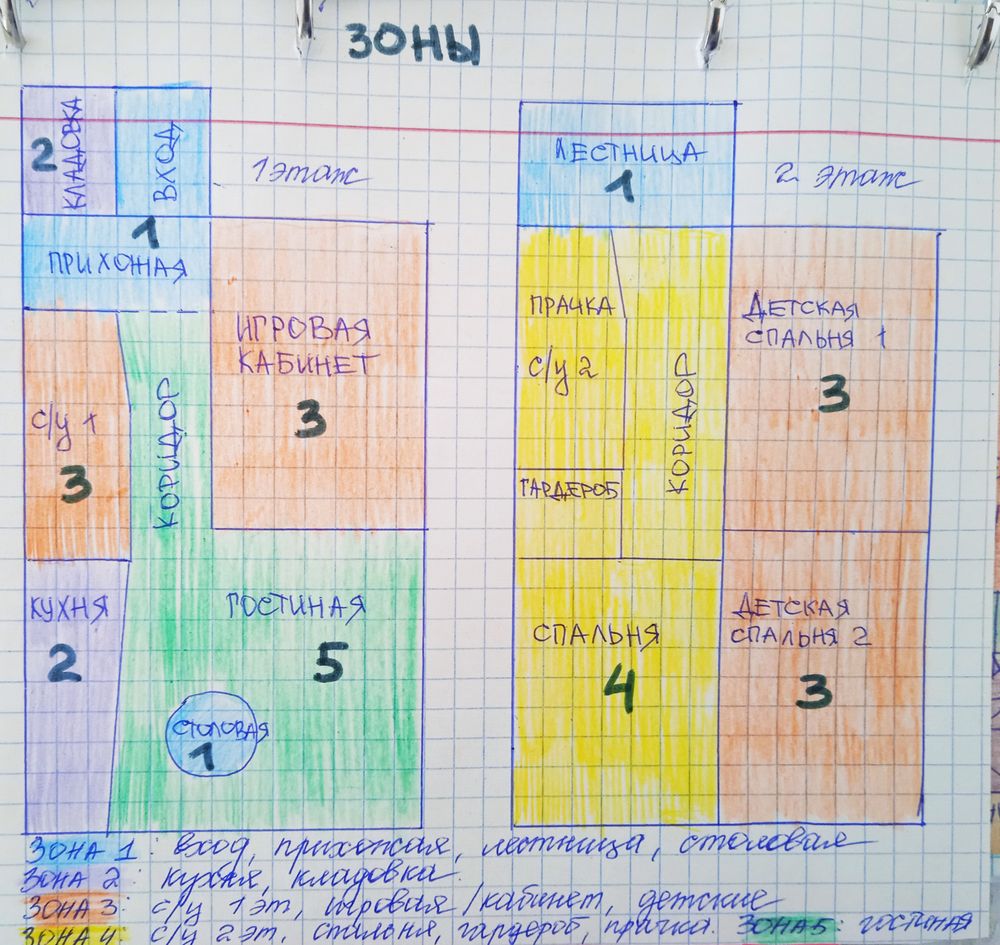 ЗОНЫ
2
КЛАДОВКА
ВХОД
1 этаж
1
ПРИХОЖАЯ
ИГРОВАЯ
КАБИНЕТ
3
с/у 1
3
КОРИДОР
КУХНЯ
2
ГОСТИНАЯ
5
СТОЛОВАЯ
1
ЛЕСТНИЦА
1
2 этаж
ПРАЧКА
с/у 2
КОРИДОР
ГАРДЕРОБ
ДЕТСКАЯ
СПАЛЬНЯ 1
3
СПАЛЬНЯ
4
ДЕТСКАЯ
СПАЛЬНЯ 2
3
ЗОНА 1: вход, прихожая, лестница, столовая
ЗОНА 2: кухня, кладовка.
ЗОНА 3: с/у 1 эт, игровая/кабинет, детские
ЗОНА 4: с/у 2 эт, спальня, гардероб, прачка. ЗОНА 5: гостиная